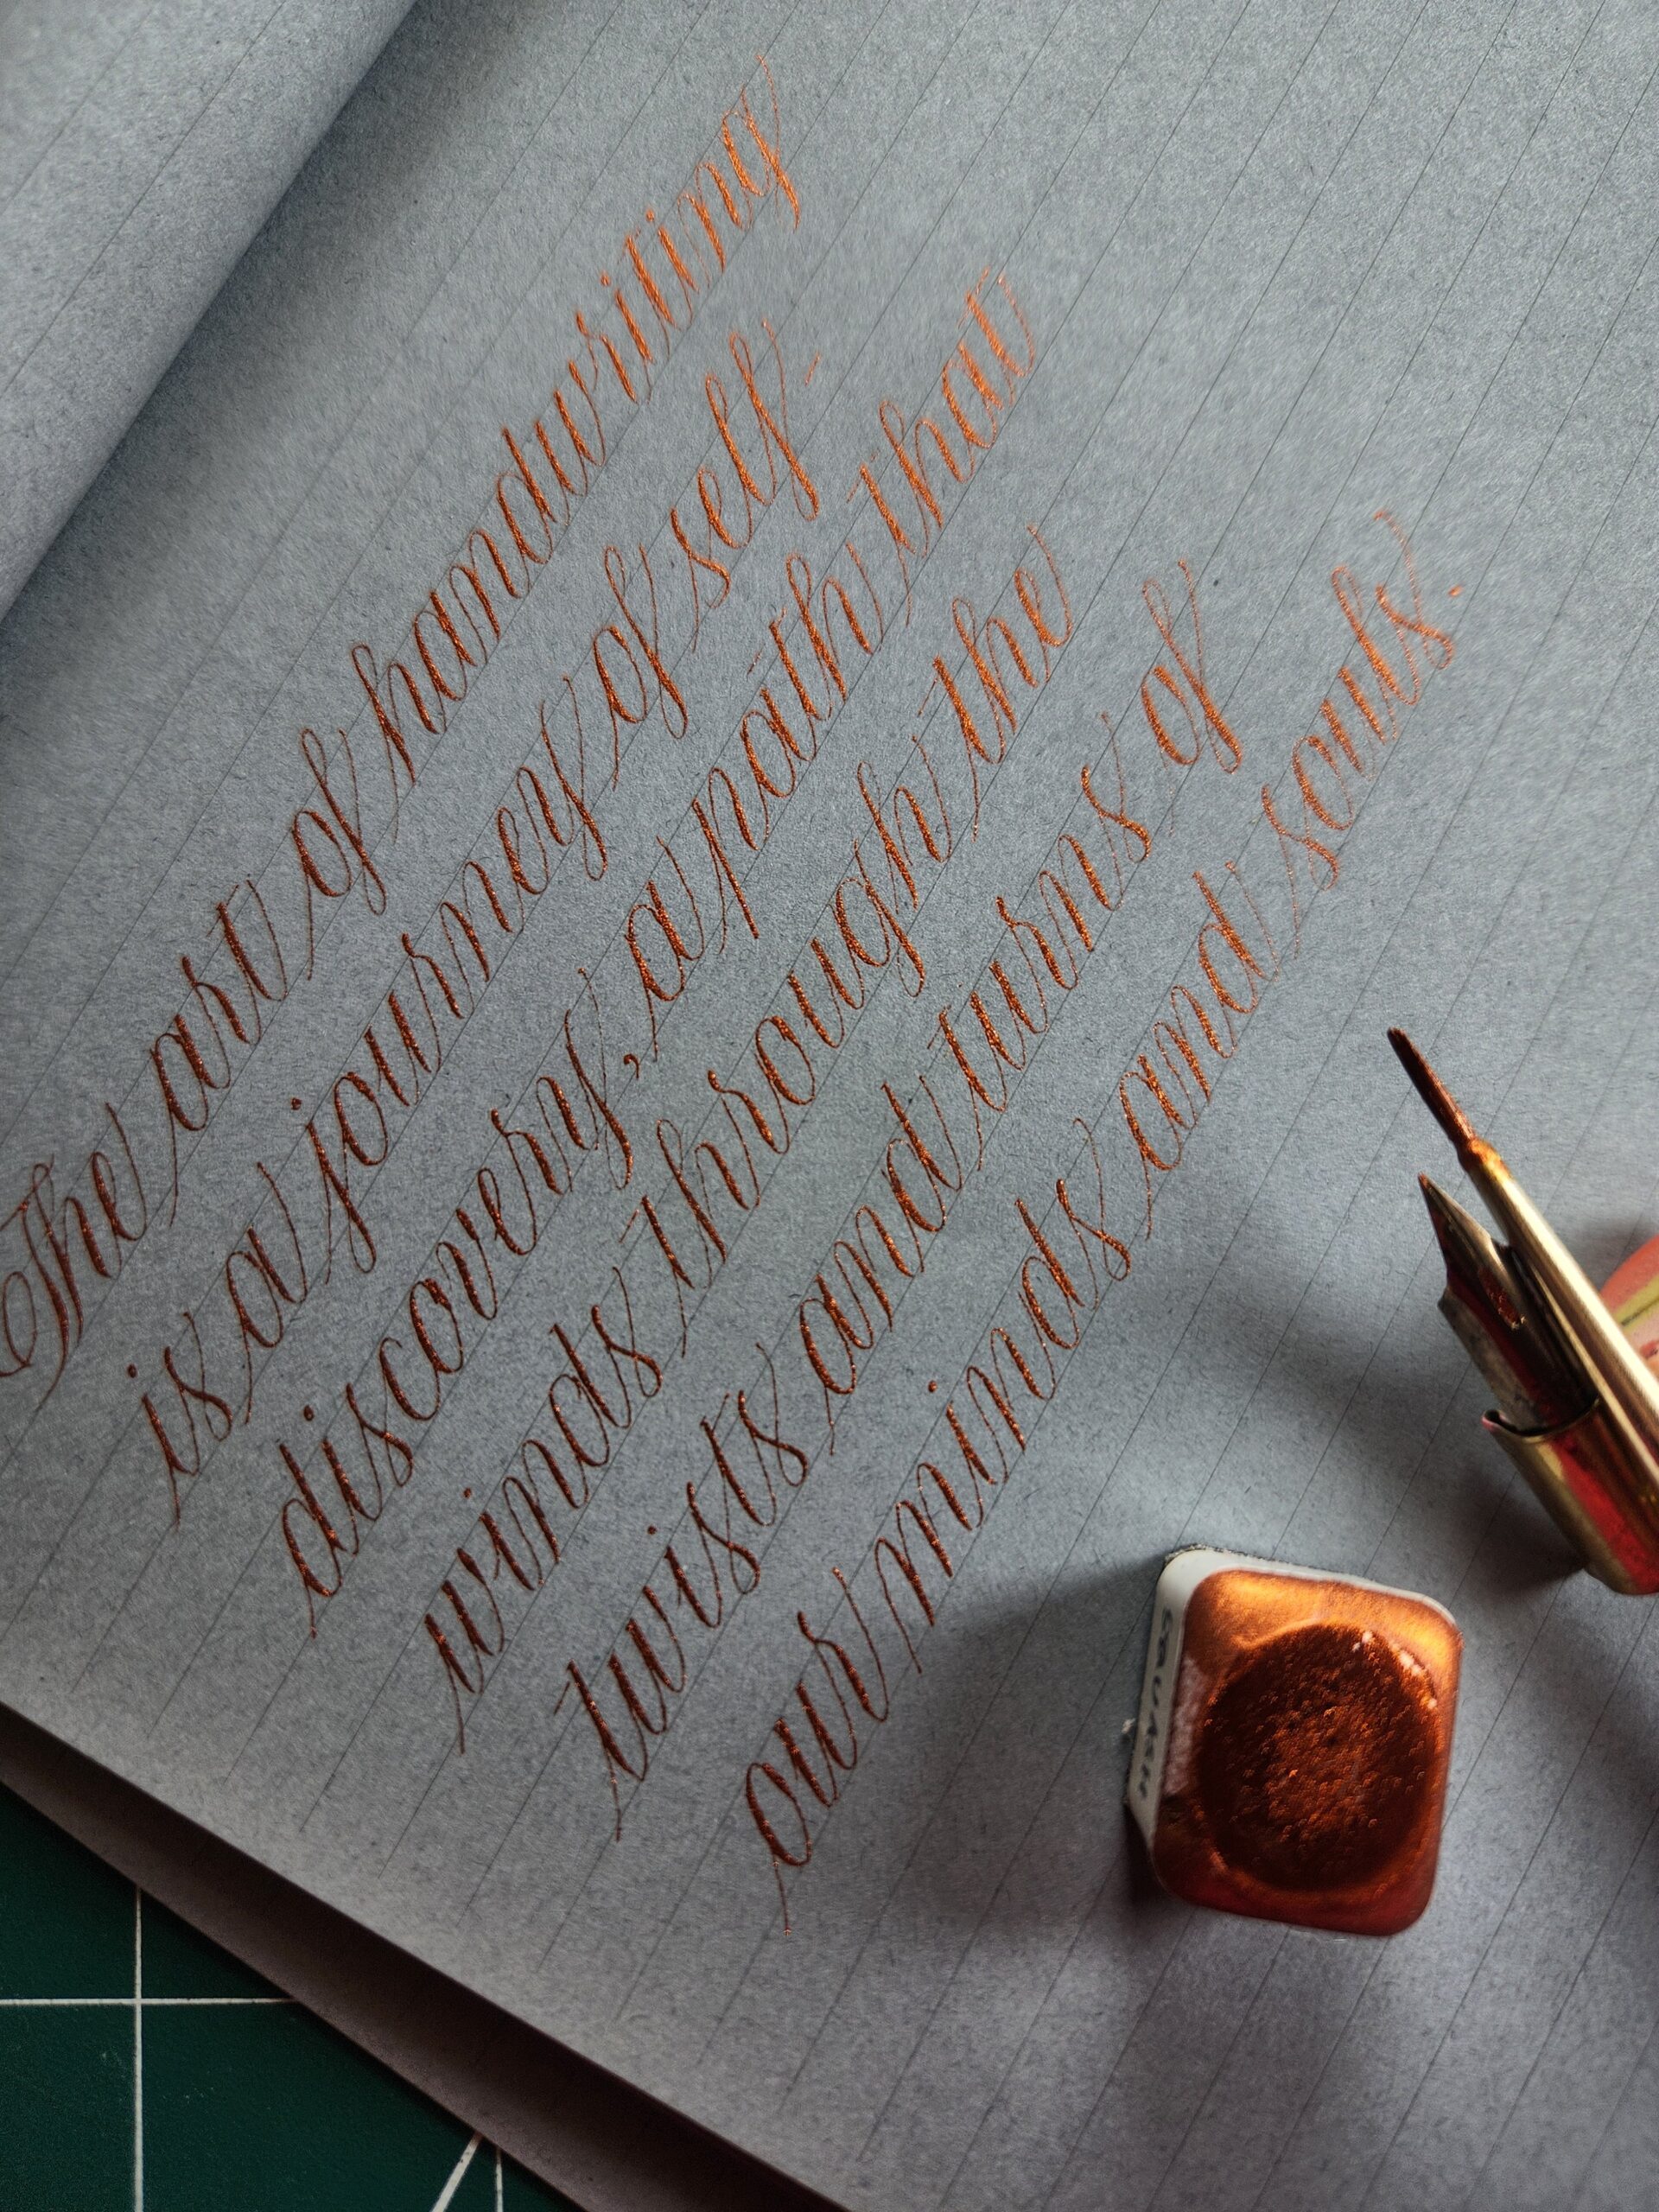 The art of handwriting
is a journey of self-
discovery, a path that
winds through the
twists and turns of
our minds and souls.